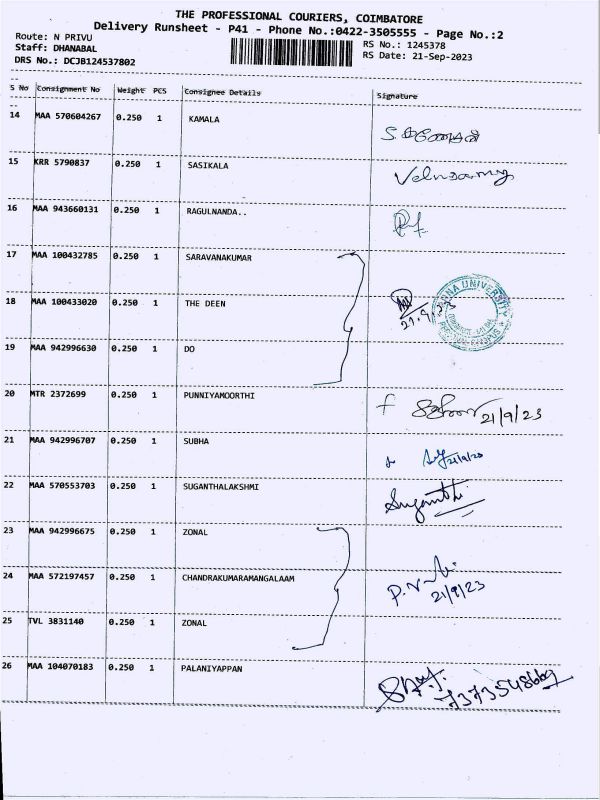 THE PROFESSIONAL COURIERS, COIMBATORE
Delivery Runsheet - P41 - Phone No.:0422-3505555 - Page No.:2
Route: N PRIVU RS No.: 1245378
Staff: DHANABAL RS Date: 21-Sep-2023
DRS No.: DCJB124537802
S No Consignment No Weight PCS Consignee Details Signature
14 MAA 570604267 0.250 1 KAMALA
15 KRR 5790837 0.250 1 SASIKALA
16 MAA 943660131 0.250 1 RAGULNANDA..
17 MAA 100432785 0.250 1 SARAVANAKUMAR
18 MAA 100433020 0.250 1 THE DEEN 21.9.23
19 MAA 942996630 0.250 1 DO
20 MTR 2372699 0.250 1 PUNNIYAMOORTHI 21/9/23
21 MAA 942996707 0.250 1 SUBHA 21/9/23
22 MAA 570553703 0.250 1 SUGANTHALAKSHMI Suganthi
23 MAA 942996675 0.250 1 ZONAL
24 MAA 572197457 0.250 1 CHANDRAKUMARAMANGALAAM 21/9/23
25 TVL 3831140 0.250 1 ZONAL
26 MAA 104070183 0.250 1 PALANIYAPPAN